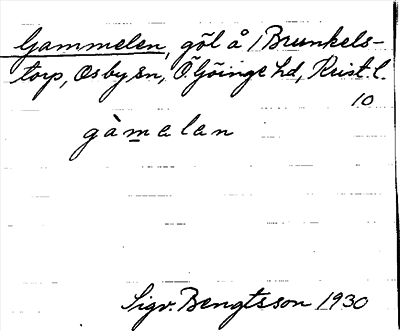 Gammelen, göl å 1 Brunkels-
torp, Osby sn, Ö. Göinge hd, Krist. l.
10
gàmelan
Sigv. Bengtsson 1930